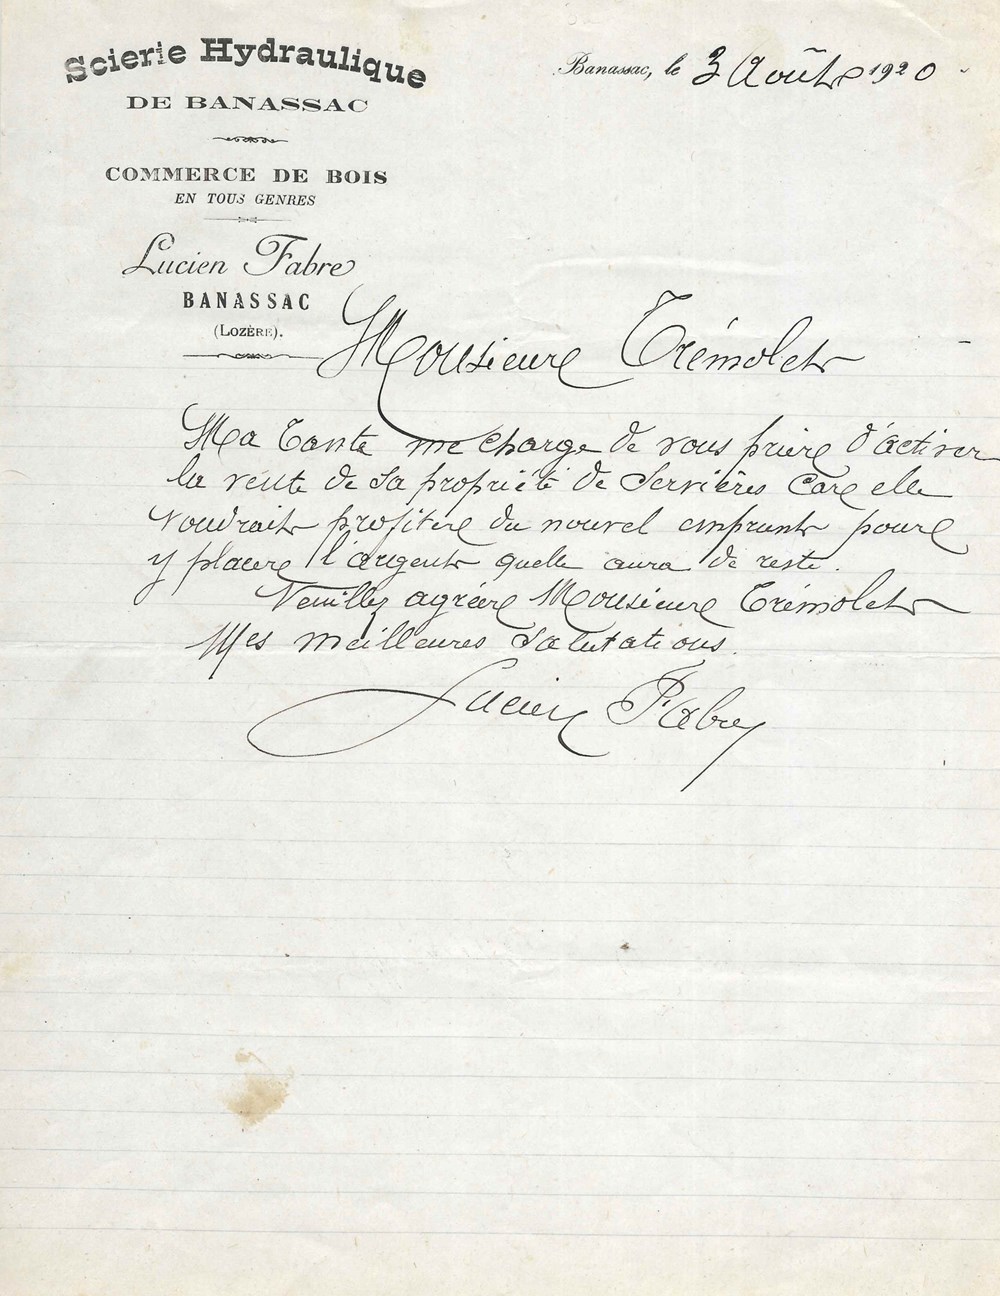 Scierie Hydraulique
DE BANASSAC
COMMERCE DE BOIS
EN TOUS GENRES
Lucien Fabre
BANASSAC
(LOZÈRE).
Banassac, le 3 Août 1920
Monsieur Trémolet
Ma Tante me charge de vous prier d'activer
la vente de sa propriété de Servières Car elle
Voudrait profiter du nouvel emprunt pour
y placer l'argent quelle aura de reste.
Veuillez agréer Monsieur Trémolet
Mes meilleures Salutations.
Lucien Fabre